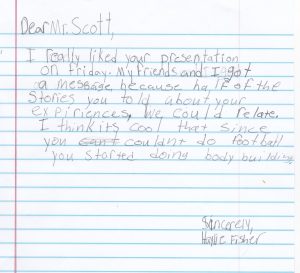 Dear Mr. Scott,
I really liked your presentation
on friday. My friends and I got
a message because half of the
stories you told about your
expiriences, we could relate.
I think its cool that since
you can't couldnt do football
you started doing body building
Sincerely,
Haylie Fisher